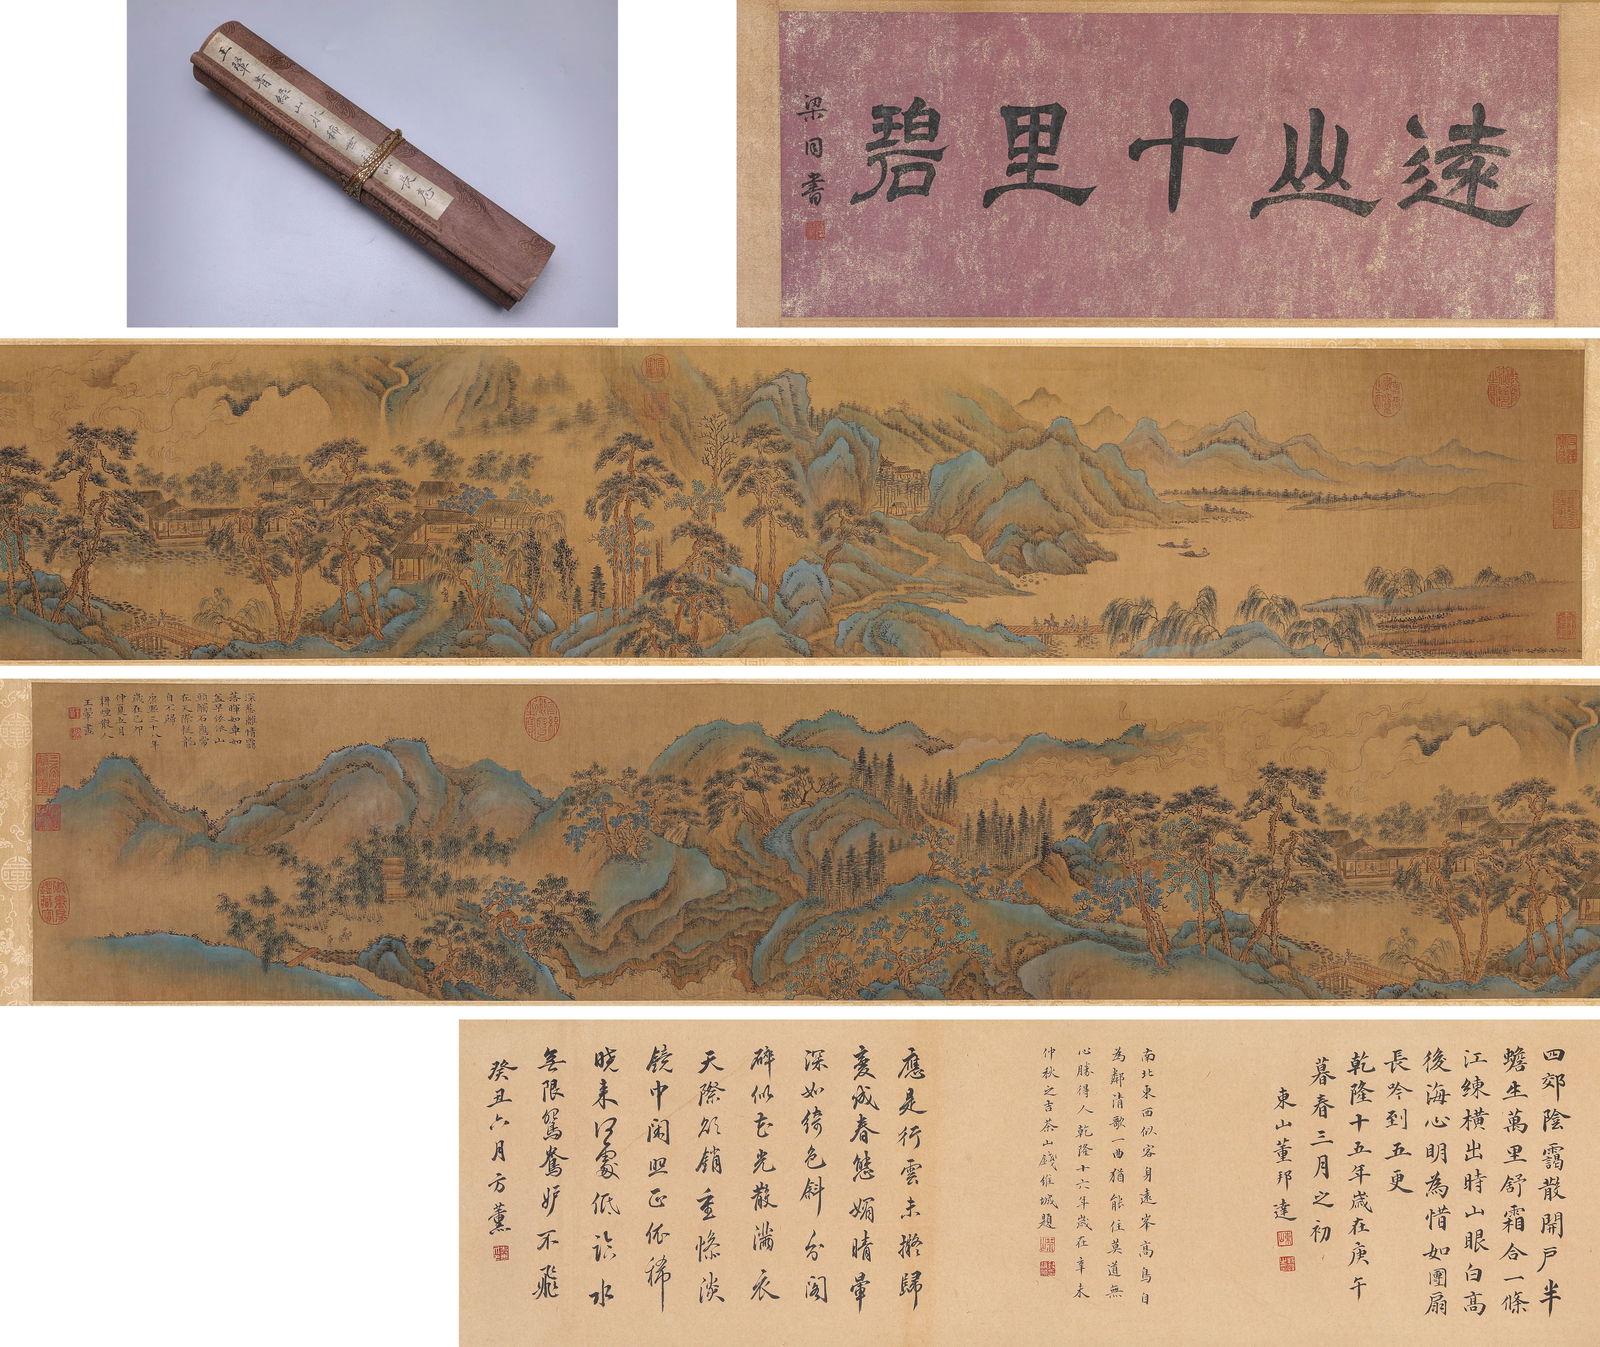 王翬青綠山水稀世
品長卷
遠山十里碧
梁同書
深巷離情霭
落暉如車如
蓋早依依山
頭觸石應常
在天際從龍
自不歸
康熙三十八年
歲在己卯
仲夏五月
耕煙散人
王翬畫
四郊陰靄散開戶半
蟾生萬里舒霜合一條
江練橫出時山眼白高
後海心明為惜如團扇
長吟到五更
乾隆十五年歲在庚午
暮春三月之初
東山董邦達
南北東西似客身遠峯高鳥自
為鄰清歌一曲猶能住莫道無
心勝得人乾隆十六年歲在辛未
仲秋之吉茶山錢維城題
應是行雲未擬歸
變成春態媚晴暈
深如綺色斜分閣
碎似花光散滿衣
天際欲銷重慘淡
鏡中閑照正依稀
曉來何處低臨水
無限鴛鴦妒不飛
癸丑六月方薰